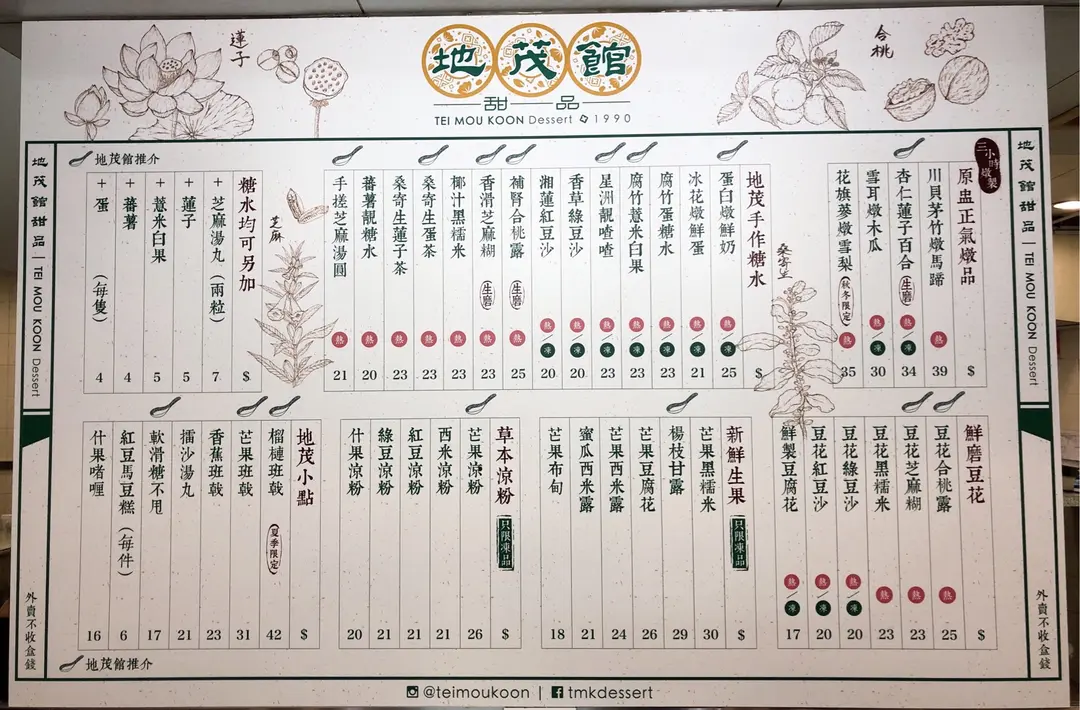 蓮子
合桃
地茂館
甜品
TEI MOU KOON Dessert 1990
地茂館甜品 | TEI MOU KOON Dessert
外賣不收盒錢
三小時燉製
原盅正氣燉品 $
川貝茅竹燉馬蹄 熱 39
杏仁蓮子百合 (生磨) 熱/凍 34
雪耳燉木瓜 熱/凍 30
花旗蔘燉雪梨 (秋冬限定) 熱 35
桑寄生
地茂手作糖水 $
蛋白燉鮮奶 熱/凍 25
冰花燉鮮蛋 熱/凍 21
腐竹蛋糖水 熱/凍 23
腐竹薏米白果 熱/凍 23
星洲靚喳喳 熱/凍 23
香草綠豆沙 熱/凍 20
湘蓮紅豆沙 熱/凍 20
補腎合桃露 (生磨) 熱 25
香滑芝麻糊 (生磨) 熱 23
椰汁黑糯米 熱 23
桑寄生蛋茶 熱 23
桑寄生蓮子茶 熱 23
蕃薯靚糖水 熱 20
手搓芝麻湯圓 熱 21
芝麻
地茂館推介
糖水均可另加 $
+芝麻湯丸(兩粒) 7
+蓮子 5
+薏米白果 5
+蕃薯 4
+蛋 (每隻) 4
鮮磨豆花 $
豆花合桃露 熱 25
豆花芝麻糊 熱 23
豆花黑糯米 熱 23
豆花綠豆沙 熱/凍 20
豆花紅豆沙 熱/凍 20
鮮製豆腐花 熱/凍 17
新鮮生果 只限凍品 $
芒果黑糯米 30
楊枝甘露 29
芒果豆腐花 26
芒果西米露 24
蜜瓜西米露 21
芒果布甸 18
草本涼粉 只限凍品 $
芒果涼粉 26
西米涼粉 21
紅豆涼粉 21
綠豆涼粉 21
什果涼粉 20
地茂小點 $
榴槤班戟 (夏季限定) 42
芒果班戟 31
香蕉班戟 23
擂沙湯丸 21
軟滑糖不甩 17
紅豆馬豆糕 (每件) 6
什果啫喱 16
地茂館推介
地茂館甜品 | TEI MOU KOON Dessert
外賣不收盒錢
@teimoukoon | tmkdessert